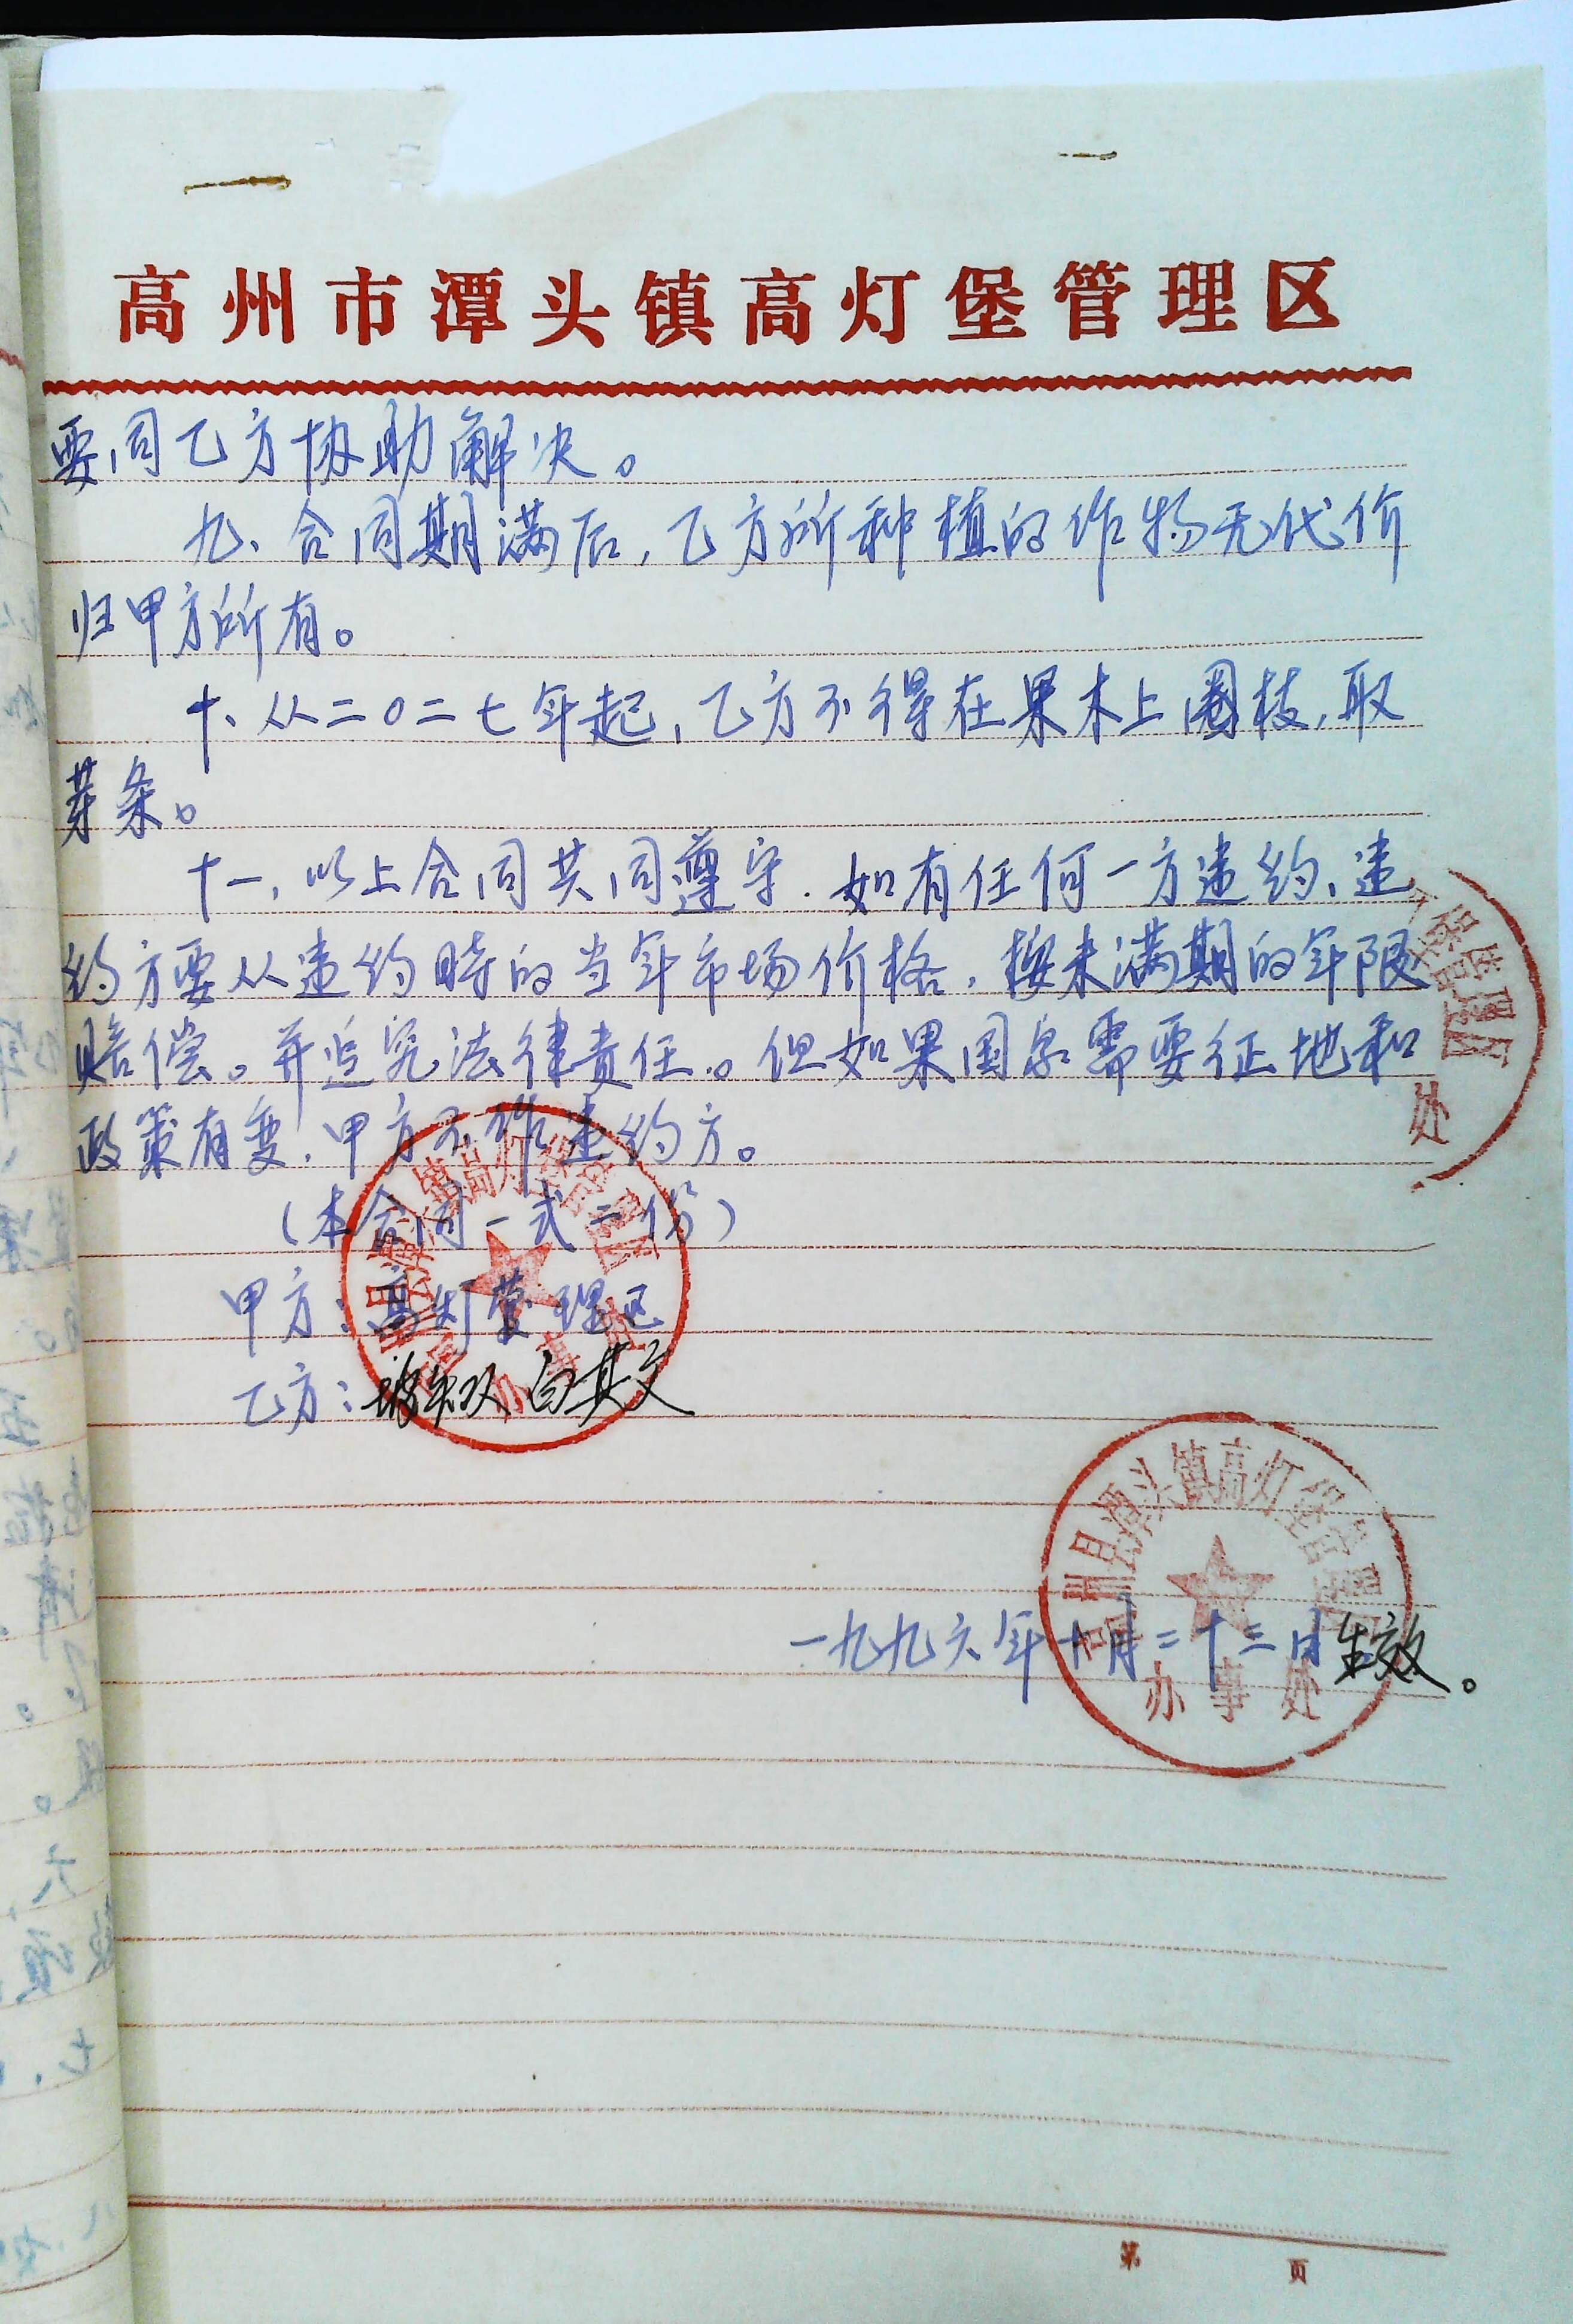 高州市潭头镇高灯堡管理区
要同乙方协助解决。
九、合同期满后，乙方所种植的作物无代价
归甲方所有。
十、从二〇二七年起，乙方不得在果木上圈枝，取
芽条。
十一，以上合同共同遵守．如有任何一方违约、违
约方要从违约时的当年市场价格，按未满期的年限
赔偿。并追究法律责任。但如果国家需要征地和
政策有变，甲方不作违约方。
（本合同一式二份）
甲方：高灯管理区
乙方：
堡管理区
处
潭头镇高灯堡管理区
一九九六年十月二十三日生效。
办事处
第 页